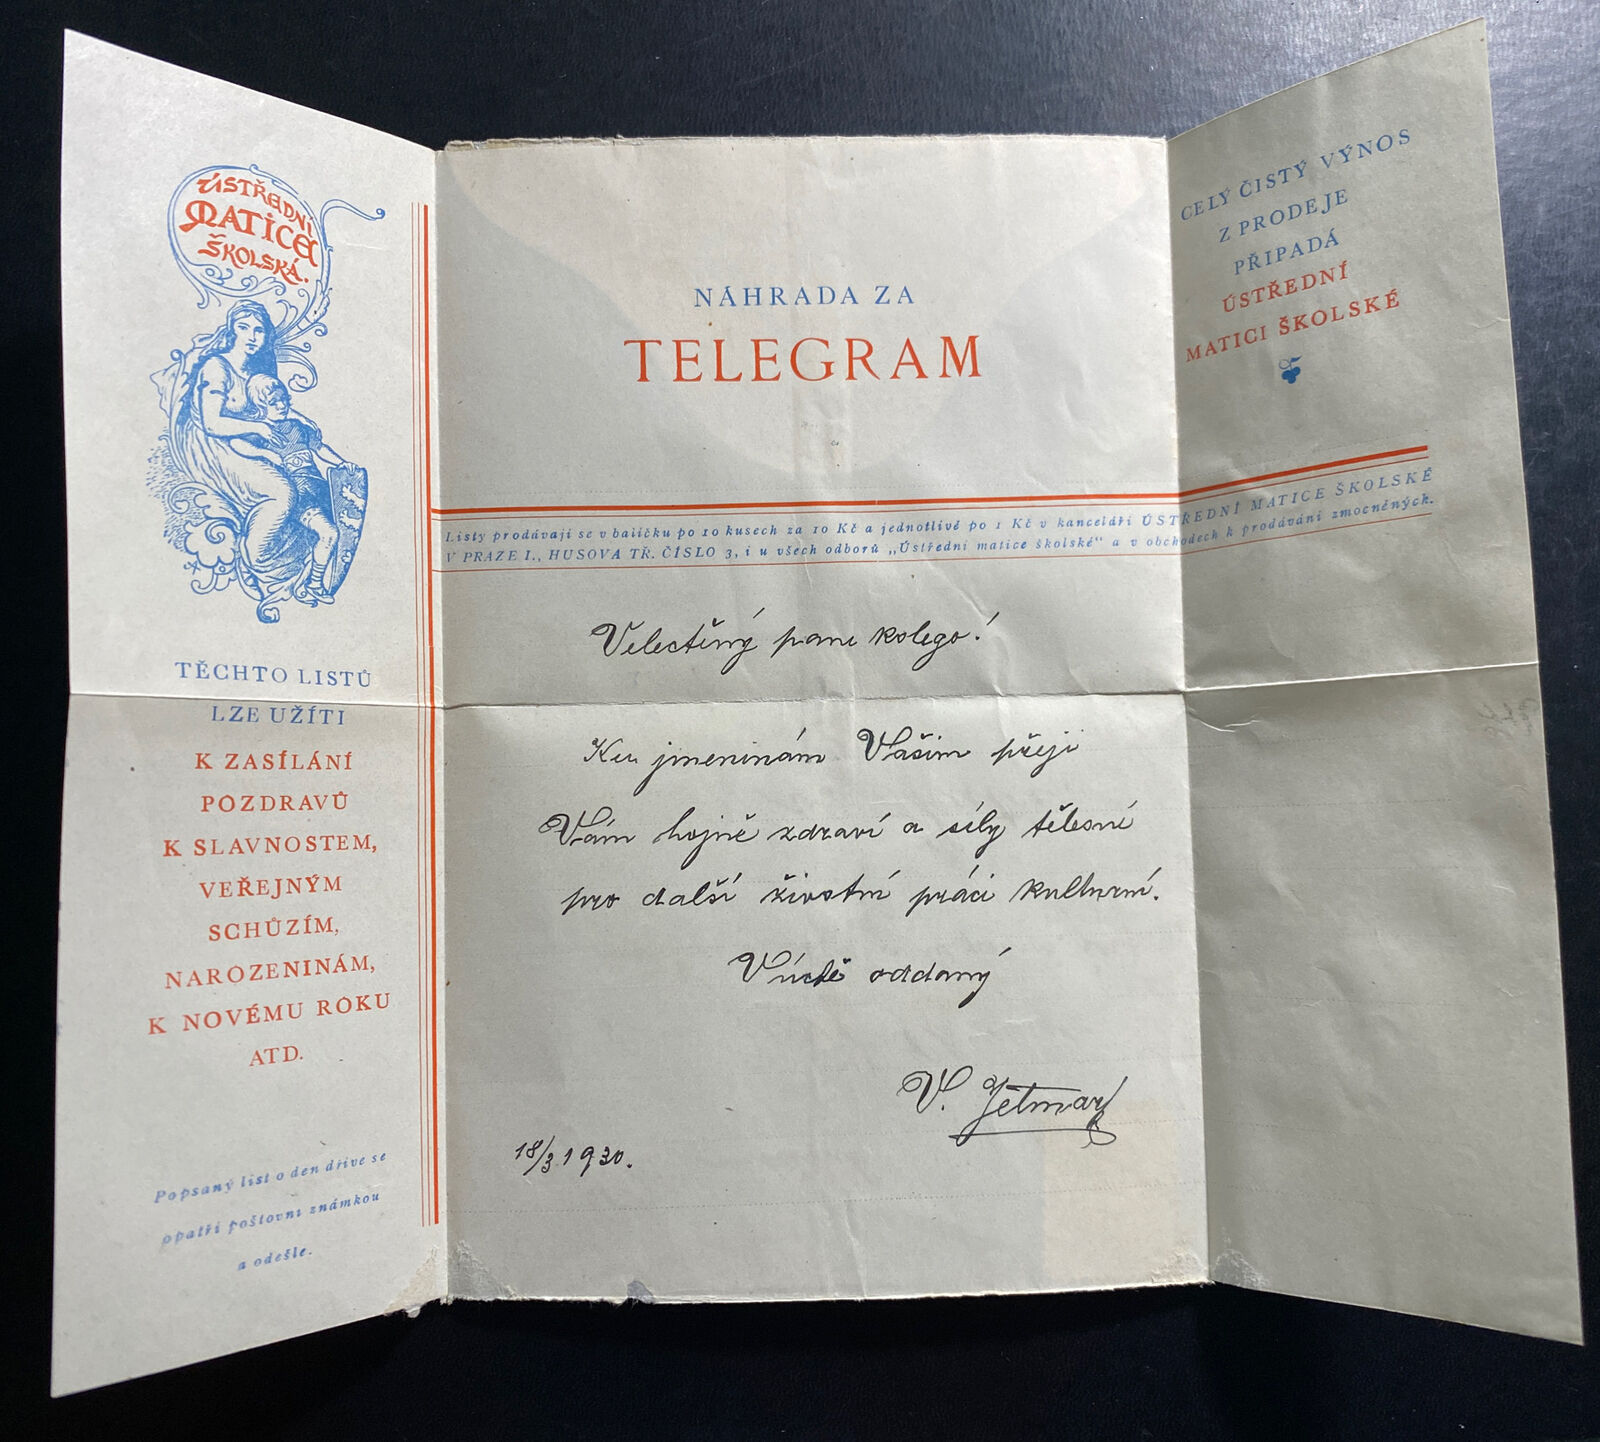 ÚSTŘEDNÍ
MATICE
ŠKOLSKÁ.
TĚCHTO LISTŮ
LZE UŽÍTI
K ZASÍLÁNÍ
POZDRAVŮ
K SLAVNOSTEM,
VEŘEJNÝM
SCHŮZÍM,
NAROZENINÁM,
K NOVÉMU ROKU
ATD.
Popsaný list o den dříve se
opatří poštovní známkou
a odešle.
NÁHRADA ZA
TELEGRAM
CELÝ ČISTÝ VÝNOS
Z PRODEJE
PŘIPADÁ
ÚSTŘEDNÍ
MATICI ŠKOLSKÉ
Listy prodávají se v balíčku po 10 kusech za 10 Kč a jednotlivě po 1 Kč v kanceláři ÚSTŘEDNÍ MATICE ŠKOLSKÉ
V PRAZE I., HUSOVA TŘ. ČÍSLO 3, i u všech odborů „Ústřední matice školské“ a v obchodech k prodávání zmocněných.
Velectěný pane kolego!
Ku jmeninám Vašim přeji
Vám hojně zdraví a síly tělesní
pro další životní práci kulturní.
V úctě oddaný
V. Jetmar
18/3 1930.